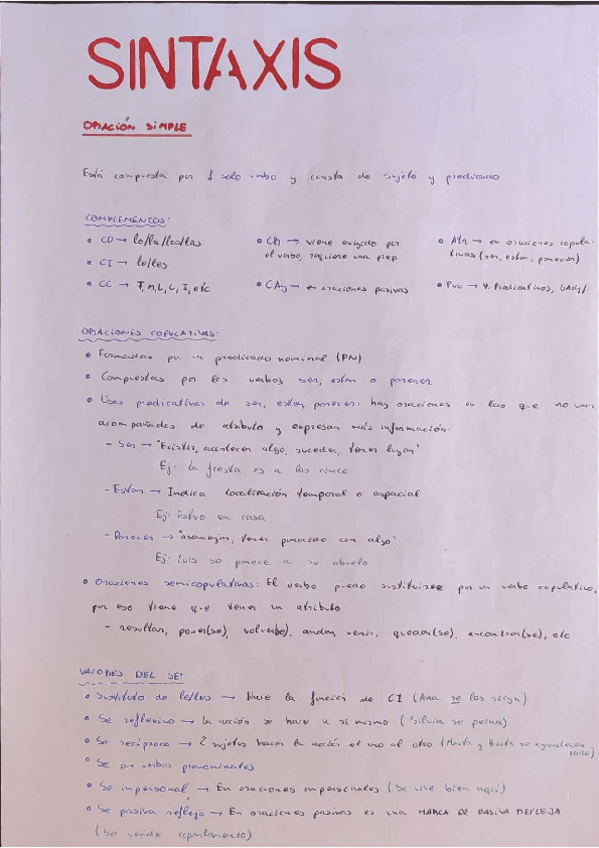 SINTAXIS
ORACIÓN SIMPLE
Está compuesta por 1 solo verbo y consta de sujeto y predicado
COMPLEMENTOS:
• CD → lo/la/los/las
• CI → le/les
• CC → T, M, L, C, I, etc
• CR → viene exigido por
el verbo, requiere una prep.
• CAg → en oraciones pasivas
• Atr → en oraciones copula-
tivas (ser, estar, parecer)
• Pvo → V. Predicativos, SAdj/
ORACIONES COPULATIVAS:
• Formadas por un predicado nominal (PN)
• Compuestas por los verbos ser, estar o parecer
• Usos predicativos de ser, estar, parecer: hay oraciones en las que no van
acompañados de atributo y expresan más información:
- Ser → "Existir, acontecer algo, suceder, tener lugar"
Ej: la fiesta es a las cinco
- Estar → Indica localización temporal o espacial
Ej: Estuvo en casa
- Parecer → "asemejar, tener parecido con algo"
Ej: Luis se parece a su abuelo
• Oraciones semicopulativas: El verbo puede sustituirse por un verbo copulativo,
por eso tiene que tener un atributo
- resultar, poner(se), volver(se), andar, venir, quedar(se), encontrar(se), etc
VALORES DEL SE:
• Sustituto de le/les → Hace la función de CI (Ana se las)
• Se reflexivo → la acción se hace a sí mismo (Silvia se peina)
• Se recíproco → 2 sujetos hacen la acción el uno al otro (Marta y Berta se)
• Se en verbos pronominales
• Se impersonal → En oraciones impersonales (Se vive bien aquí)
• Se pasiva refleja → En oraciones pasivas es una MARCA DE PASIVA REFLEJA
(Se vende apartamento)